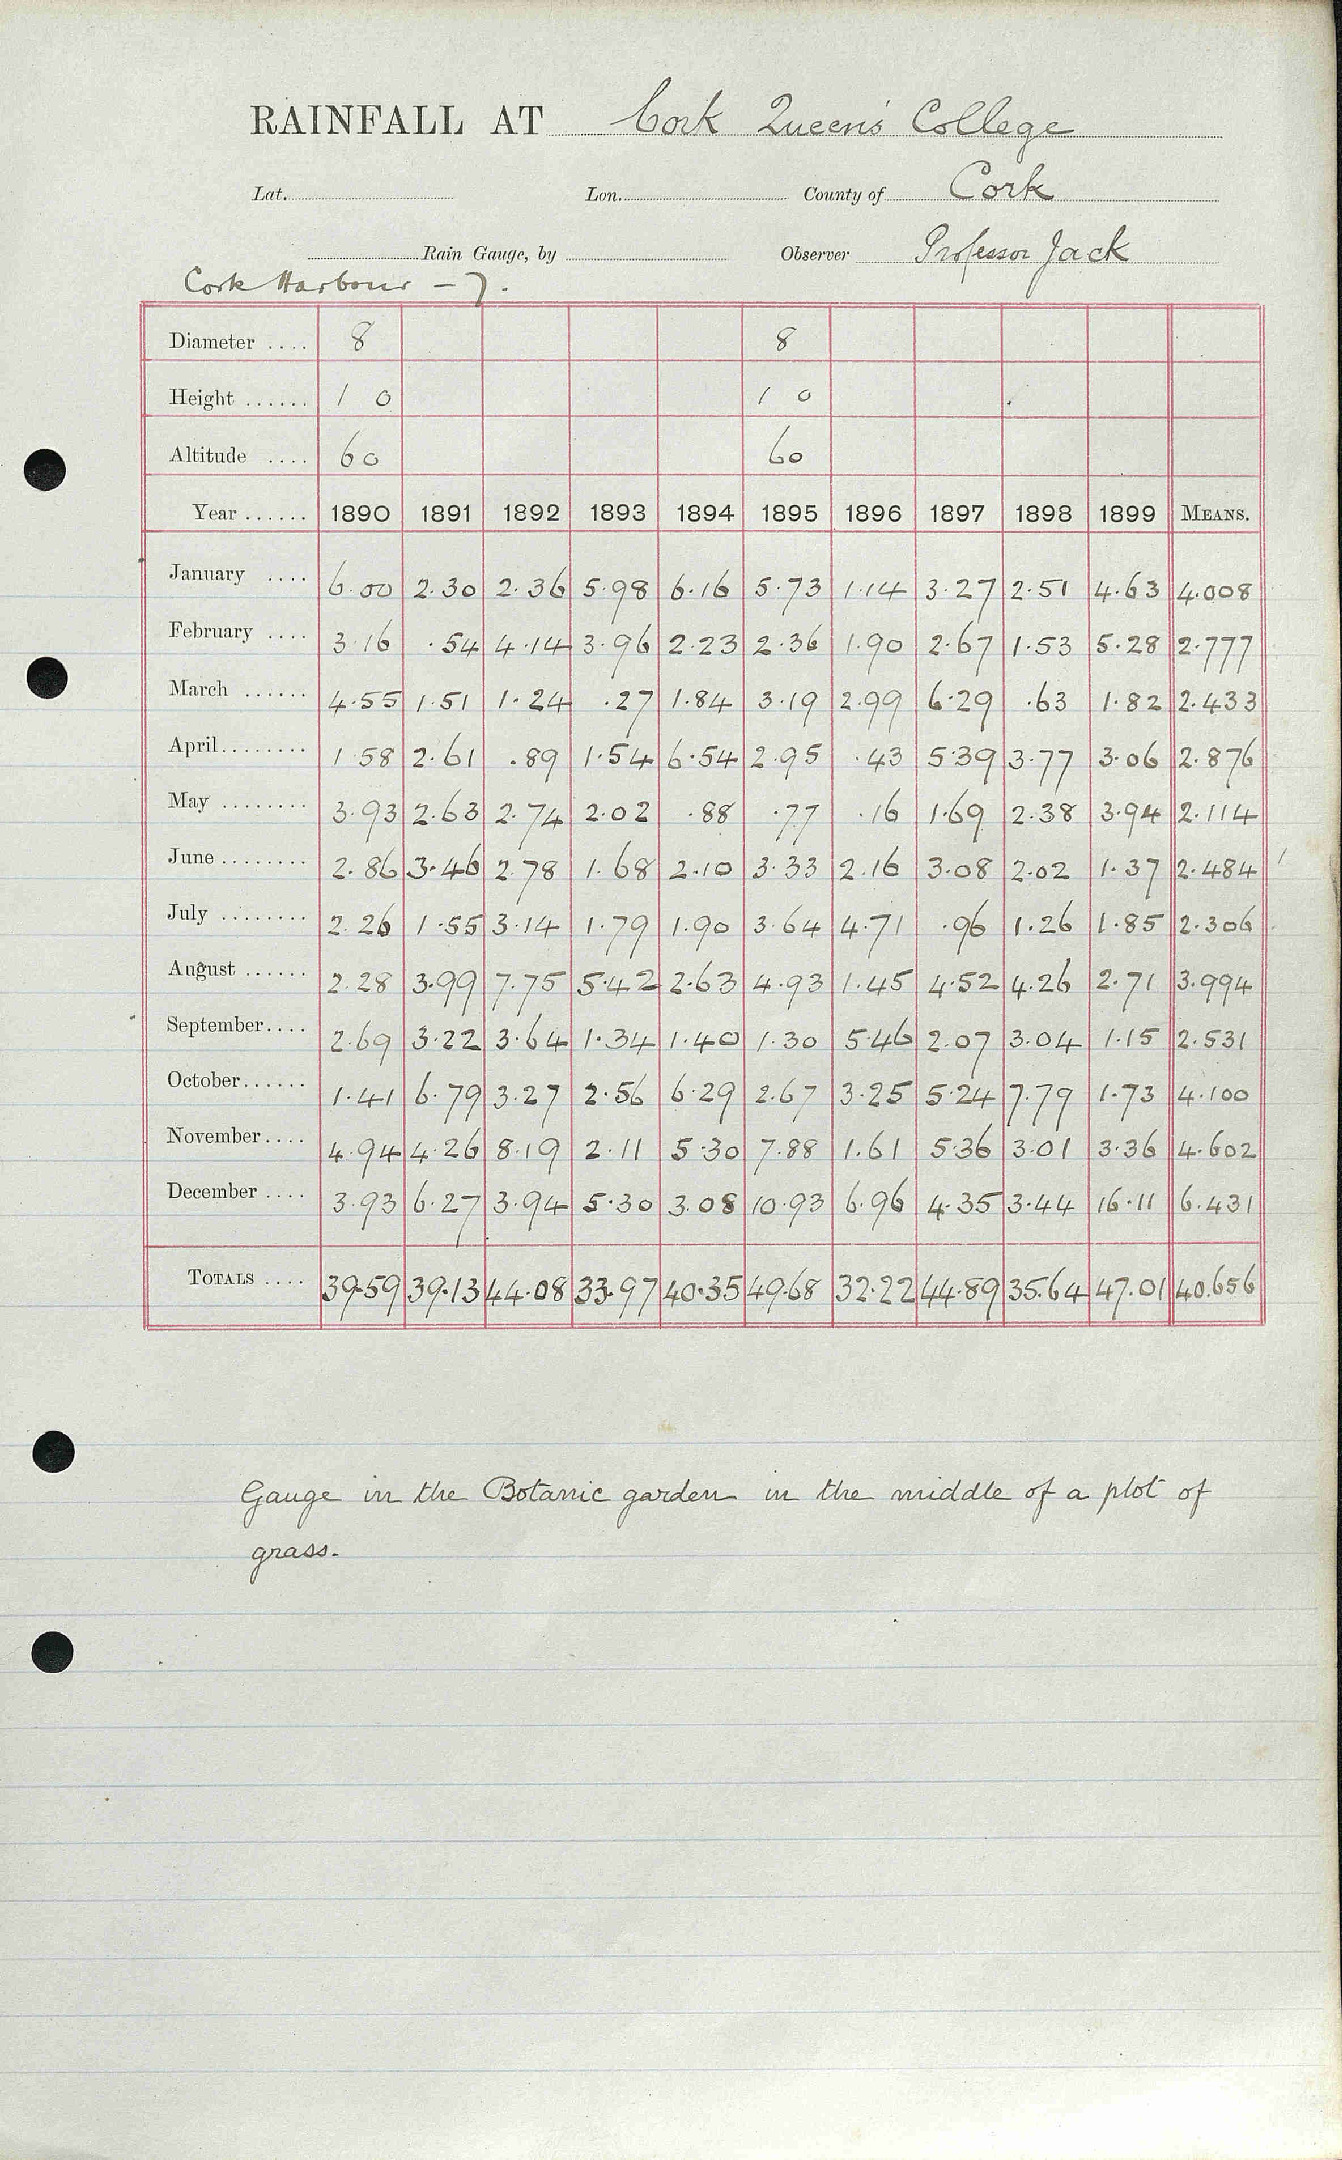 RAINFALL AT Cork Queen's College
Lat. Lon. County of Cork
Rain Gauge, by Observer Professor Jack
Cork Harbour - 7.
Diameter .... 8 8
Height ...... 1 0 1 0
Altitude .... 60 60
Year ...... 1890 1891 1892 1893 1894 1895 1896 1897 1898 1899 MEANS.
January .... 6.00 2.30 2.36 5.98 6.16 5.73 1.14 3.27 2.51 4.63 4.008
February .... 3.16 .54 4.14 3.96 2.23 2.36 1.90 2.67 1.53 5.28 2.777
March ...... 4.55 1.51 1.24 .27 1.84 3.19 2.99 6.29 .63 1.82 2.433
April........ 1.58 2.61 .89 1.54 6.54 2.95 .43 5.39 3.77 3.06 2.876
May ........ 3.93 2.63 2.74 2.02 .88 .77 .16 1.69 2.38 3.94 2.114
June ........ 2.86 3.46 2.78 1.68 2.10 3.33 2.16 3.08 2.02 1.37 2.484
July ........ 2.26 1.55 3.14 1.79 1.90 3.64 4.71 .96 1.26 1.85 2.306
August ...... 2.28 3.99 7.75 5.42 2.63 4.93 1.45 4.52 4.26 2.71 3.994
September.... 2.69 3.22 3.64 1.34 1.40 1.30 5.46 2.07 3.04 1.15 2.531
October...... 1.41 6.79 3.27 2.56 6.29 2.67 3.25 5.24 7.79 1.73 4.100
November.... 4.94 4.26 8.19 2.11 5.30 7.88 1.61 5.36 3.01 3.36 4.602
December .... 3.93 6.27 3.94 5.30 3.08 10.93 6.96 4.35 3.44 16.11 6.431
TOTALS .... 39.59 39.13 44.08 33.97 40.35 49.68 32.22 44.89 35.64 47.01 40.656
Gauge in the Botanic garden in the middle of a plot of
grass.